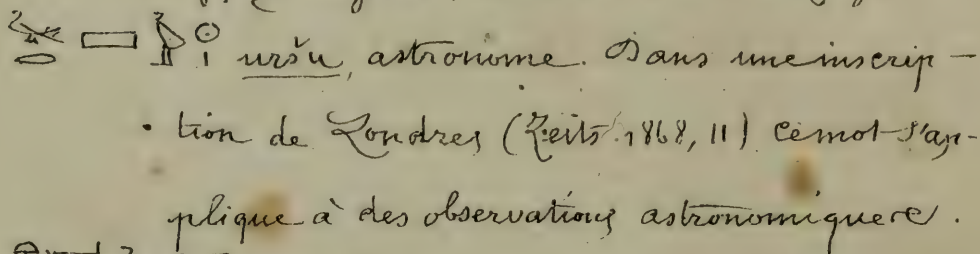 uršu, astronome. Dans une inscrip-
tion de Londres (Zeits. 1868, 11) ce mot s'ap-
plique à des observations astronomiques.